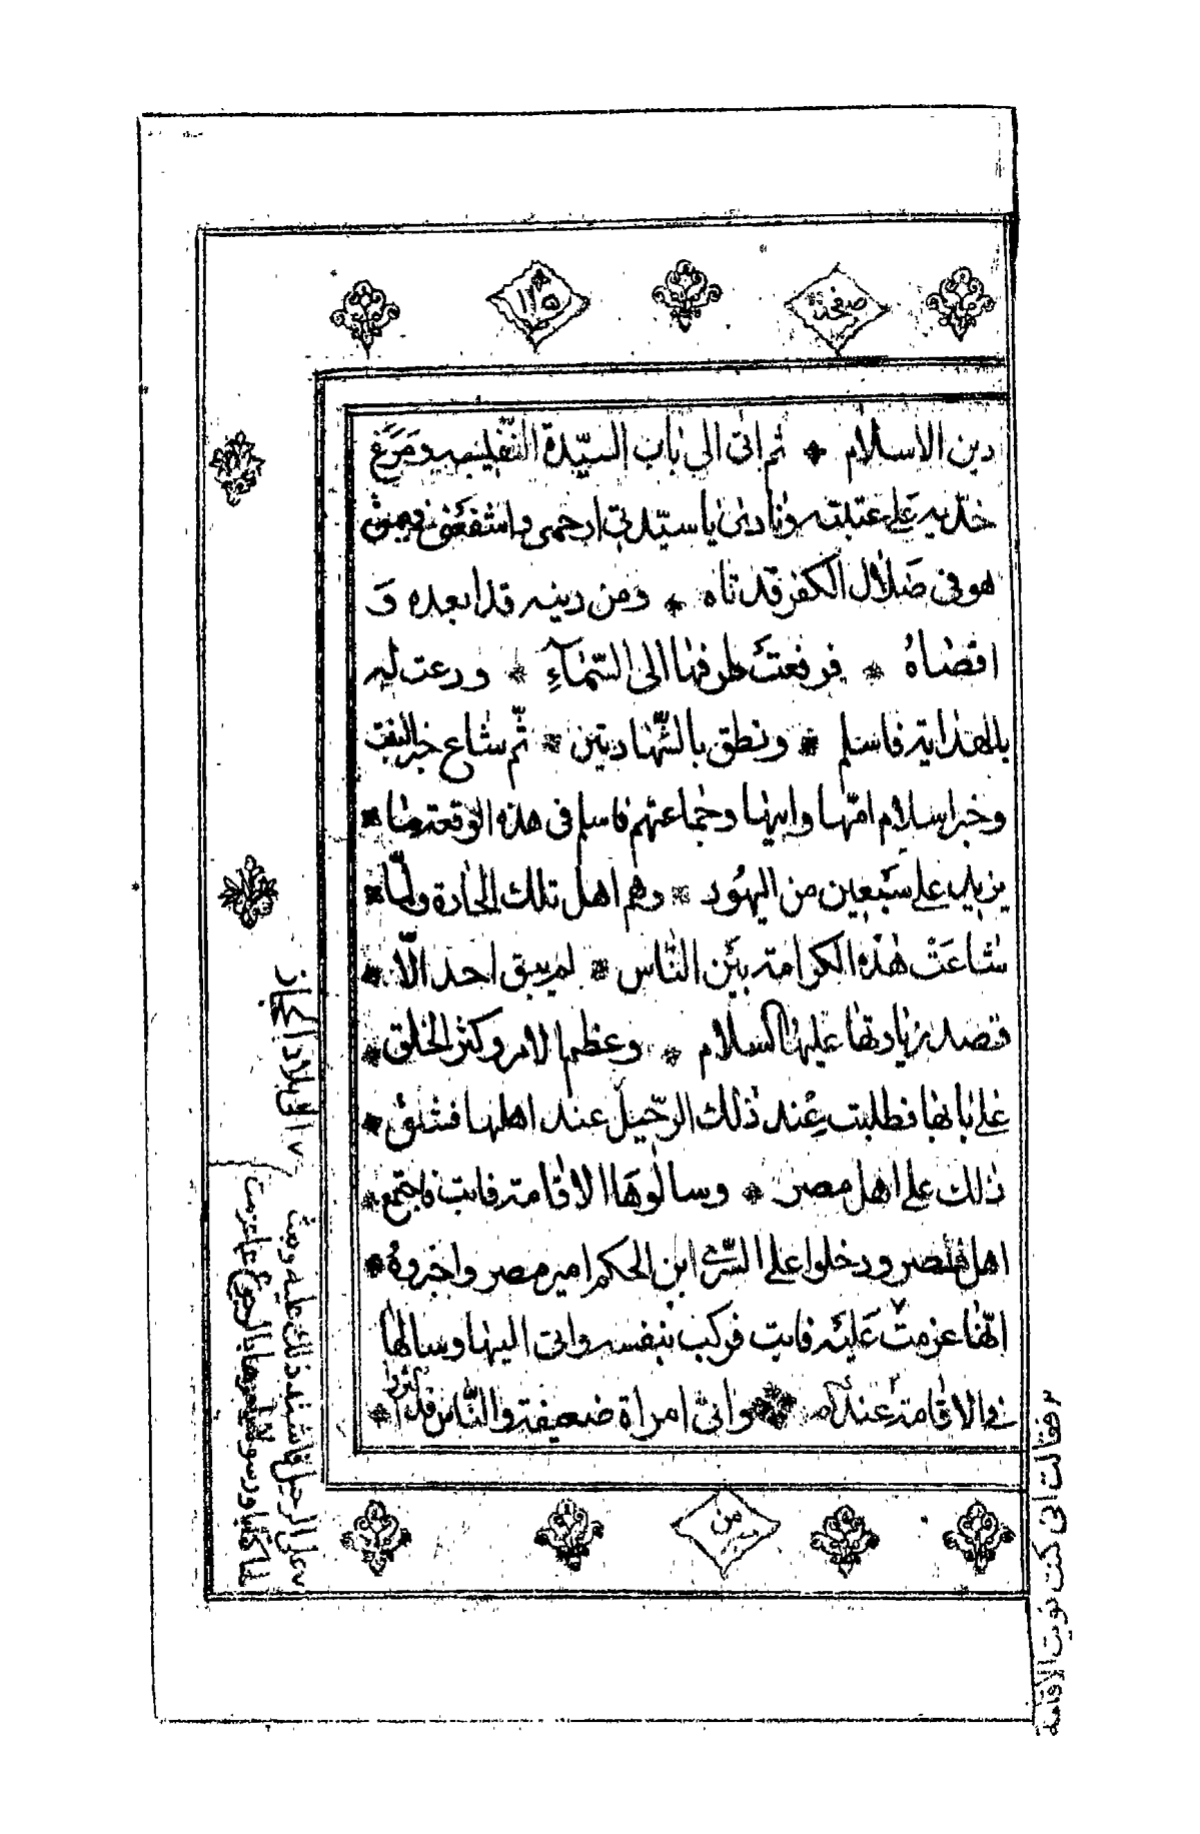 صفحة ١٢٥
دين الاسلام ❖ ثم اتى الى باب السيّدة النّفيسه ومَرَغَ
خدّيه على عتبته ونادى يا سيّدتى ارحمى واشفعى فيمن
هو فى ضَلال الكفر قد تاه ❖ ومن دينه قد ابعده وَ
اقصاهُ ❖ فرفعت طرفها الى السّمآءِ ❖ ودعت له
بالهداية فاسلم ❖ ونطق بالشّهادتين ❖ ثمّ شاع خبر البنت
وخبر اسلام امّها وابيها وجماعتهم فاسلم فى هذه الوقعة ما
يزيد على سَبعين من اليهُود ❖ وهم اهل تلك الحارة ولمّا
شاعَتْ هٰذه الكرامة بَيْن النّاس ❖ لم يبق احد الّا
قصد زيارتها عليها السلام ❖ وعظم الامر وكثر الخلق
على بابها فطلبت عِند ذٰلك الرّحيل عند اهلها فشق
ذلك على اهل مصر ❖ وسالُوهَا الاقامة فابت فاجتمع
اهل مصر ودخلوا على السّرى ابن الحكم امير مصر واخبروهُ
انّها عزمت عَليَه فركب بنفسه واتى اليها وسالها
فى الاقامة عنده ❖ وانّى امراة ضعيفة والنّاس قد
من
الى بلاد الحجاز
على الرحيل فاشتد ذلك عليه وبعث
لها كتابا ورسولا يامرها بالرجوع عما عزمت
فقالت انى كنت نويت الاقامة